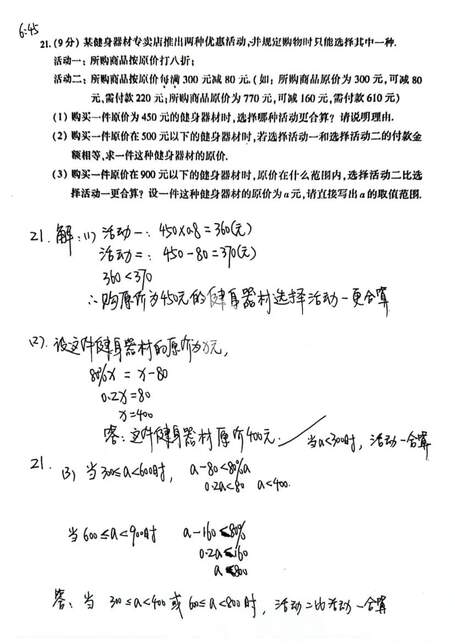 6:45
21.(9分)某健身器材专卖店推出两种优惠活动,并规定购物时只能选择其中一种.
活动一:所购商品按原价打八折;
活动二:所购商品按原价每满300元减80元.(如:所购商品原价为300元,可减80
元,需付款220元;所购商品原价为770元,可减160元,需付款610元)
(1)购买一件原价为450元的健身器材时,选择哪种活动更合算?请说明理由.
(2)购买一件原价在500元以下的健身器材时,若选择活动一和选择活动二的付款金
额相等,求一件这种健身器材的原价.
(3)购买一件原价在900元以下的健身器材时,原价在什么范围内,选择活动二比选
择活动一更合算?设一件这种健身器材的原价为a元,请直接写出a的取值范围.
21. 解:(1) 活动一: 450×0.8=360(元)
活动二: 450-80=370(元)
360<370
∴购原价为450元的健身器材选择活动一更合算
(2). 设这件健身器材的原价为x元,
80%x = x-80
0.2x=80
x=400
答:这件健身器材原价400元.
当a<300时, 活动一合算
21. (3) 当300≤a<600时, a-80<80%a
0.2a<80 a<400.
当600≤a<900时 a-160<80%
0.2a<160
a<800
答: 当 300≤a<400 或 600≤a<800时, 活动二比活动一合算